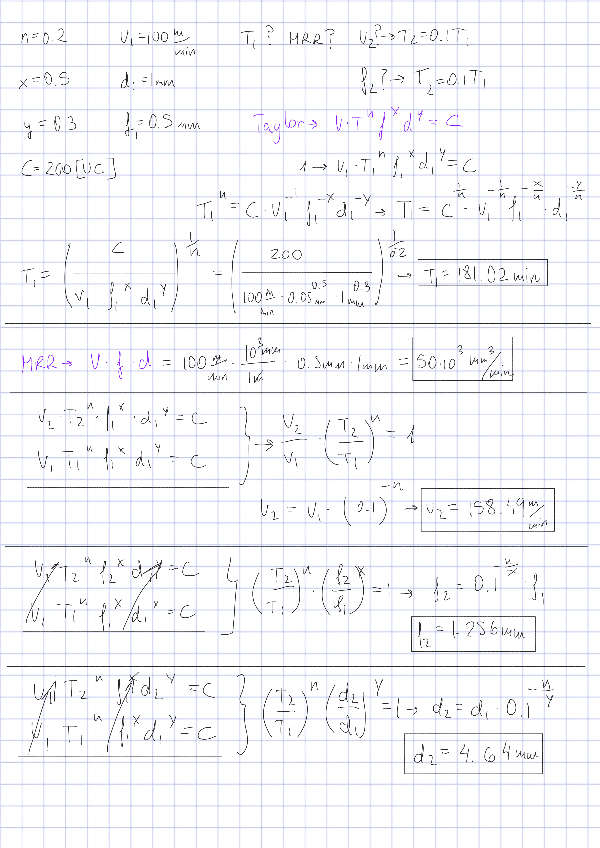 n=0.2 V₁=100 m/min T₁? MRR? V₂?→T₂=0.1T₁
x=0.5 d₁=1mm f₂?→ T₂=0.1T₁
y=0.3 f₁=0.5mm Taylor→ V·Tⁿ fˣ dʸ = C
C=200[UC] 1→ V₁·T₁ⁿ f₁ˣ d₁ʸ = C
T₁ⁿ = C·V₁⁻¹ f₁⁻ˣ d₁⁻ʸ → T₁ = C^(1/n) · V₁^(-1/n) f₁^(-x/n) · d₁^(-y/n)
T₁ = (C / (V₁ f₁ˣ d₁ʸ))^(1/n) = (200 / (100 m/min · 0.05mm^0.5 · 1mm^0.3))^(1/0.2) → T₁=181.02min
MRR→ V·f·d = 100 m/min · 10³mm/1m · 0.5mm·1mm = 50·10³ mm³/min
V₂·T₂ⁿ·f₁ˣ·d₁ʸ = C
V₁ T₁ⁿ f₁ˣ d₁ʸ = C } → V₂/V₁ · (T₂/T₁)ⁿ = 1
V₂ = V₁·(0.1)⁻ⁿ → V₂=158.49 m/min
V₁ T₂ⁿ f₂ˣ d₁ʸ = C
V₁ T₁ⁿ f₁ˣ d₁ˣ = C } (T₂/T₁)ⁿ·(f₂/f₁)ˣ = 1 → f₂ = 0.1^(-n/x) · f₁
f₂=1.256mm
V₁ T₂ⁿ f₁ˣ d₂ʸ = C
V₁ T₁ⁿ f₁ˣ d₁ʸ = C } (T₂/T₁)ⁿ (d₂/d₁)ʸ = 1 → d₂ = d₁·0.1^(-n/y)
d₂ = 4.64mm